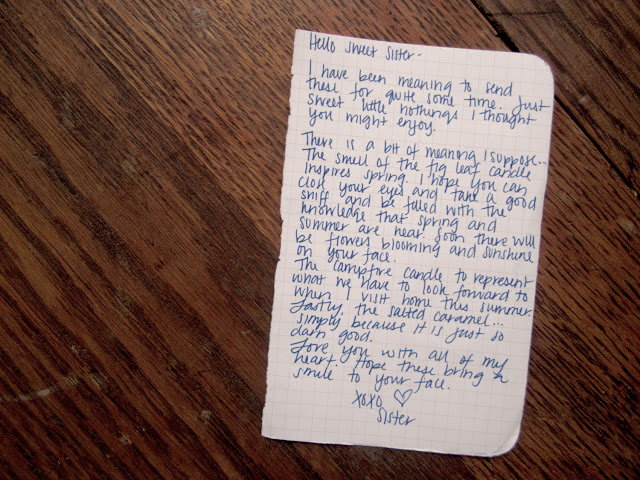 Hello sweet sister-
I have been meaning to send
these for quite some time. Just
sweet little nothings I thought
you might enjoy.
There is a bit of meaning I suppose...
The smell of the fig leaf candle
inspires spring. I hope you can
close your eyes and take a good
sniff and be filled with the
knowledge that spring and
summer are near. Soon there will
be flowers blooming and sunshine
on your face.
The campfire candle to represent
what we have to look forward to
when I visit home this summer.
Lastly, the salted caramel...
simply because it is just so
darn good.
Love you with all of my
heart. Hope these bring a
smile to your face.
XOXO ♡
Sister